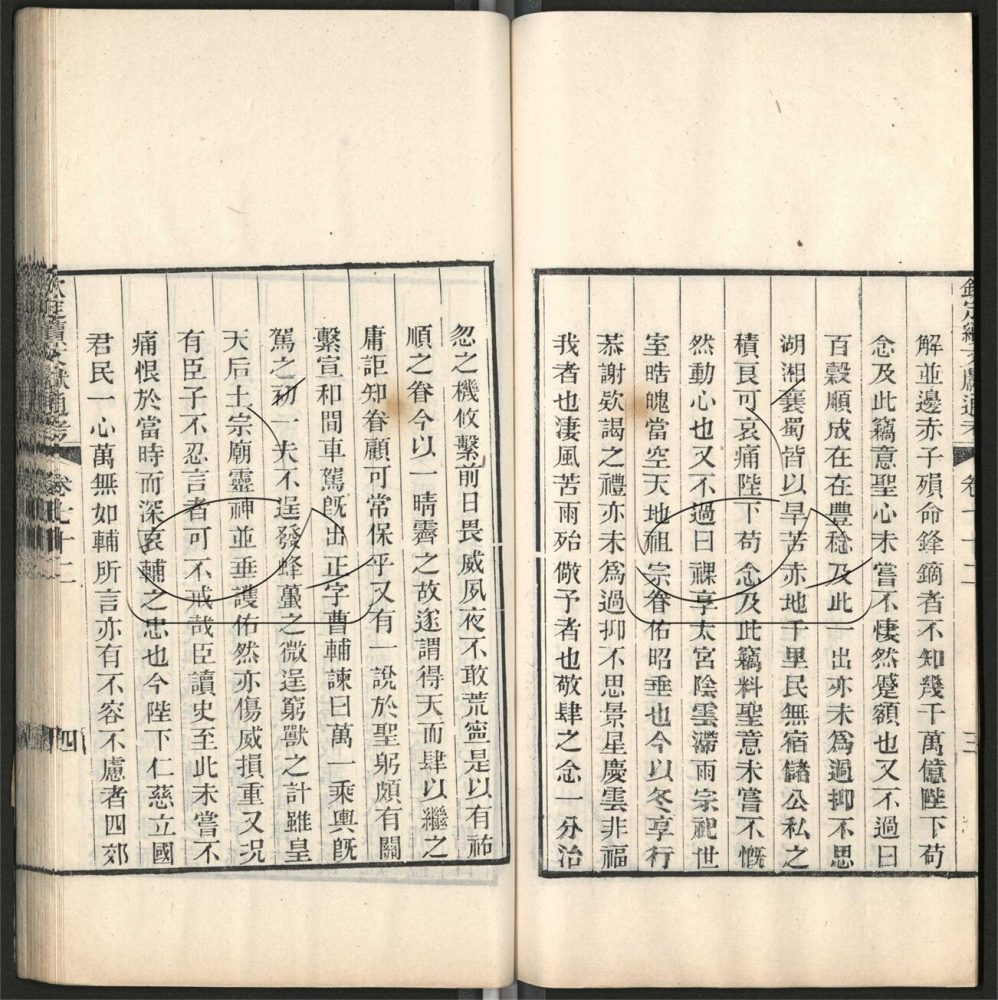 解並邊赤子殞命鋒鏑者不知幾千萬億陛下苟
念及此竊意聖心未嘗不悽然蹙額也又不過曰
百穀順成在在豐稔及此一出亦未為過抑不思
湖湘襄蜀皆以旱苦赤地千里民無宿儲公私之
積良可哀痛陛下苟念及此竊料聖意未嘗不慨
然動心也又不過曰祼享太宮陰雲滯雨宗祀世
室晧魄當空天地祖宗眷佑昭垂也今以冬享行
恭謝欵謁之禮亦未為過抑不思景星慶雲非福
我者也淒風苦雨殆儆予者也敬肆之念一分治
忽之機攸繫前日畏威夙夜不敢荒寧是以有祐
順之眷今以一晴霽之故遂謂得天而肆以繼之
庸詎知眷顧可常保乎又有一說於聖躬頗有關
繫宣和間車駕旣出正字曹輔諫曰萬一乘輿旣
駕之初一夫不逞發蜂蠆之微逞窮獸之計雖皇
天后土宗廟靈神並垂護佑然亦傷威損重又況
有臣子不忍言者可不戒哉臣讀史至此未嘗不
痛恨於當時而深哀輔之忠也今陛下仁慈立國
君民一心萬無如輔所言亦有不容不慮者四郊
卷七十二
四